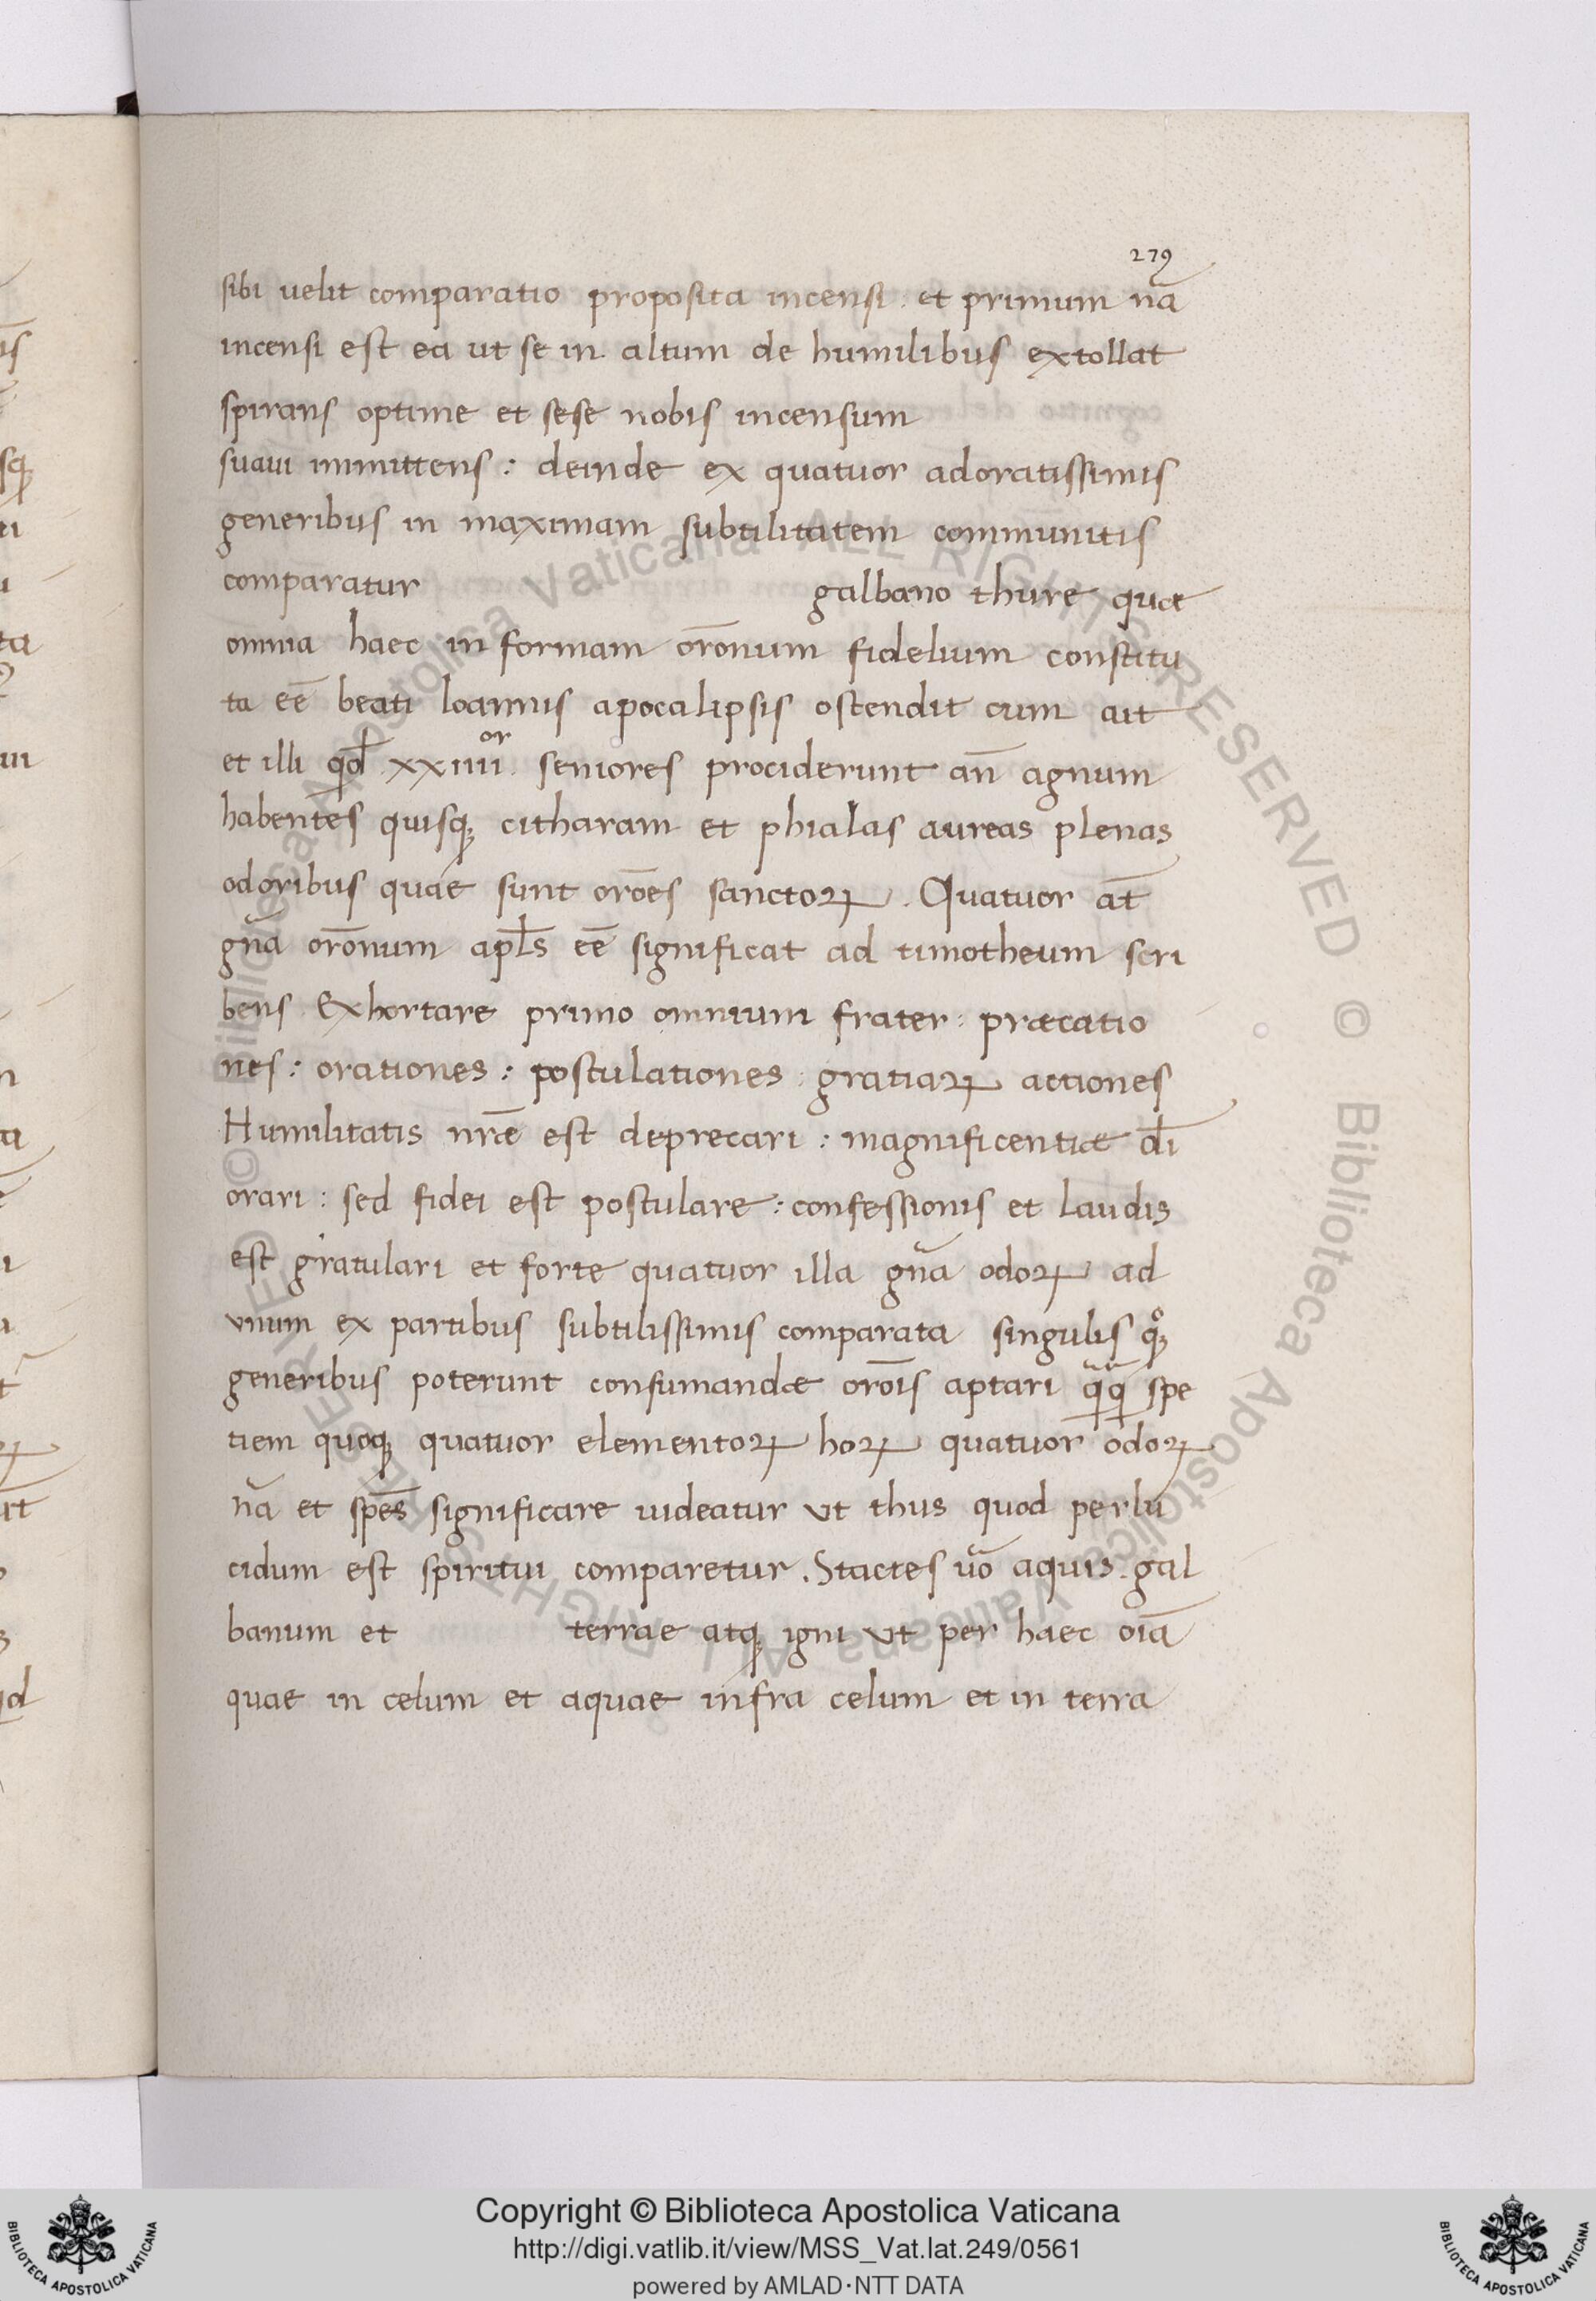 279
sibi uelit comparatio proposita incensi . et primum nā
incensi est ea ut se in altum de humilibus extollat
spirans optime et sese nobis incensum
suaui inmittens : deinde ex quatuor adoratissimis
generibus in maximam subtilitatem commūnitis
comparatur galbano thure quæ
omnia haec in formam orōnum fidelium constitu
ta eē beati Ioannis apocalipsis ostendit cum ait
et illi xxiiii.or seniores prociderunt an̄ agnum
habentes quisqꝫ citharam et phialas aureas plenas
odoribus quae sunt orōes sanctoꝝ . Quatuor at̄
gn̄a orōnum apl̄s eē significat ad timotheum scri
bens Exhortare primo omnium frater : præcatio
nes : orationes : postulationes : gratiaꝝ actiones
Humilitatis nr̄æ est deprecari : magnificentiæ dī
orari : sed fidei est postulare : confessionis et laudis
est gratulari et forte quatuor illa gn̄a odoꝝ ad
vnum ex partibus subtilissimis comparata singulis qꝫ
generibus poterunt consumandæ orōis aptari spe
tiem quoqꝫ quatuor elementoꝝ hoꝝ quatuor odoꝝ
nā et spēs significare uideatur vt thus quod perlu
cidum est spiritui comparetur . Stactes uō aquis . gal
banum et terrae atqꝫ igni vt per haec oīa
quae in celum et aquae infra celum et in terra
Copyright © Biblioteca Apostolica Vaticana
http://digi.vatlib.it/view/MSS_Vat.lat.249/0561
powered by AMLAD·NTT DATA
BIBLIOTECA APOSTOLICA VATICANA
BIBLIOTECA APOSTOLICA VATICANA